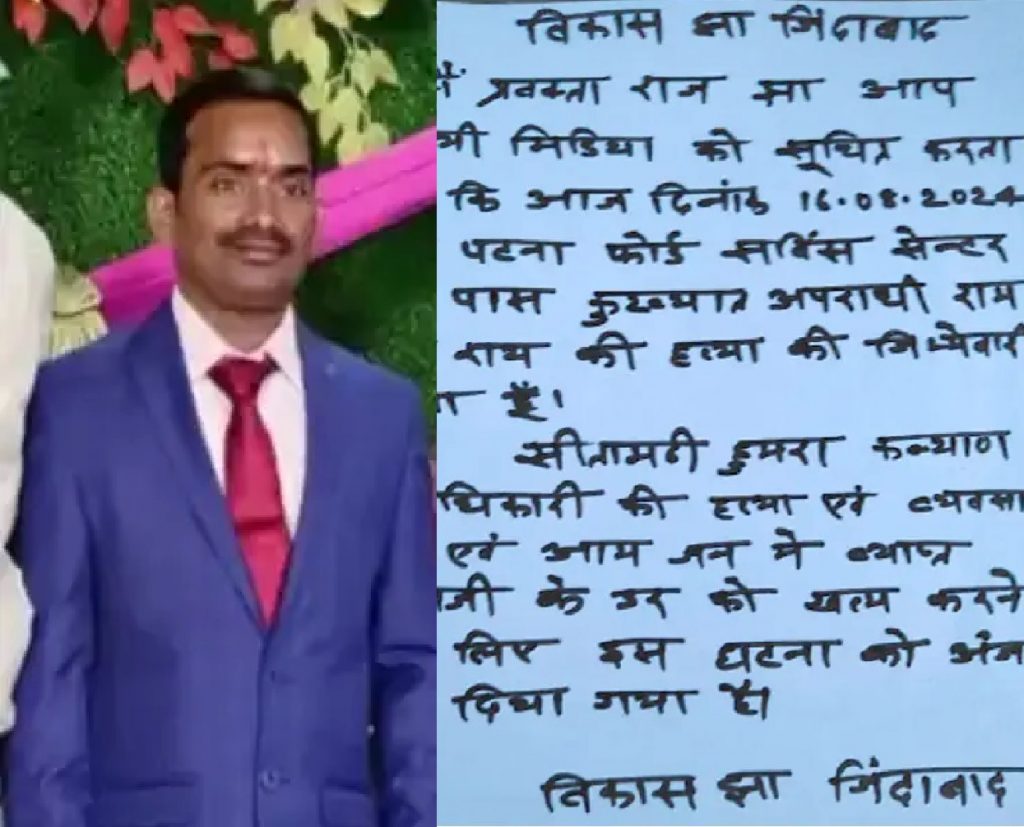 विकास झा जिंदाबाद
में प्रवक्ता राज झा आप
भी मिडिया को सूचित करता
कि आज दिनांक 16.08.2024
पटना फोर्ड सर्विस सेन्टर
पास कुख्यात अपराधी राम
राय की हत्या की जिम्मेवारी
है।
सीतामढी डुमरा कल्याण
धिकारी की हत्या एवं व्यवसा
एवं आम जन मे व्याप्त
जी के डर को खत्म करने
लिए इस घटना को अंज
दिया गया है।
विकास झा जिंदाबाद